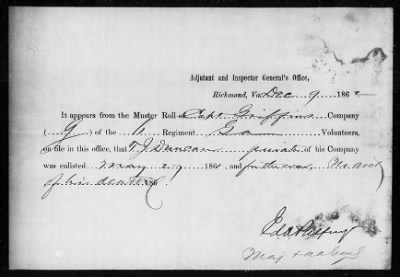 Adjutant and Inspector General's Office,
Richmond, Va Dec 9 1862
It appears from the Muster Roll of Capt Griffins Company
(G) of the Regiment Ga Volunteers,
on file in this office, that T. J. Duncan private of his Company
was enlisted May 27 186 and for the war, No acct
of his death 186
Maj &